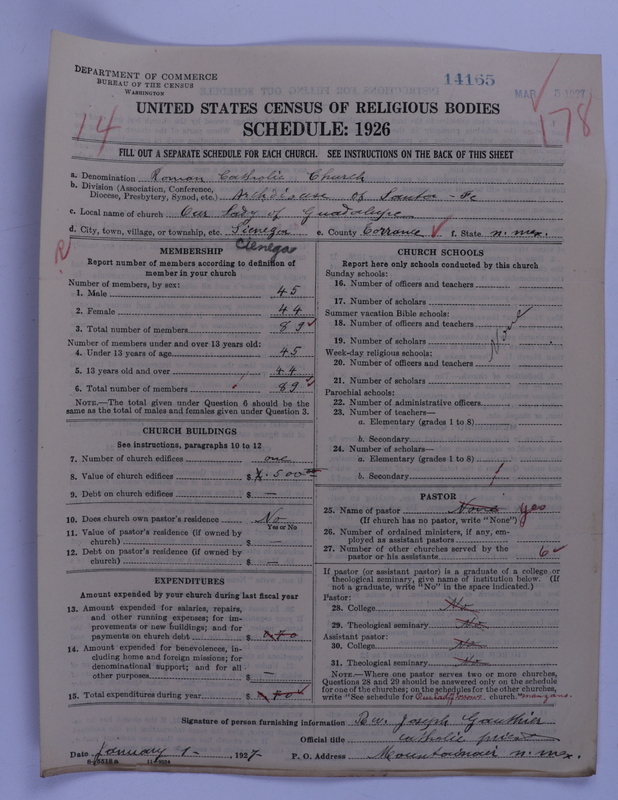 DEPARTMENT OF COMMERCE
BUREAU OF THE CENSUS
WASHINGTON
14165
MAR 5 1927
14
178
UNITED STATES CENSUS OF RELIGIOUS BODIES
SCHEDULE: 1926
FILL OUT A SEPARATE SCHEDULE FOR EACH CHURCH. SEE INSTRUCTIONS ON THE BACK OF THIS SHEET
a. Denomination Roman Catholic Church
b. Division (Association, Conference, Diocese, Presbytery, Synod, etc.) Archdiocese of Santa-Fe
c. Local name of church Our Lady of Guadalupe
d. City, town, village, or township, etc. Sienega e. County Torrance f. State n. mex.
Cienega
R
MEMBERSHIP
Report number of members according to definition of
member in your church
Number of members, by sex:
1. Male 45
2. Female 44
3. Total number of members 89
Number of members under and over 13 years old:
4. Under 13 years of age 45
5. 13 years old and over 44
6. Total number of members 89
NOTE.—The total given under Question 6 should be the
same as the total of males and females given under Question 3.
CHURCH BUILDINGS
See instructions, paragraphs 10 to 12
7. Number of church edifices one
8. Value of church edifices $ 500
9. Debt on church edifices $ —
10. Does church own pastor's residence No
Yes or No
11. Value of pastor's residence (if owned by
church) $ —
12. Debt on pastor's residence (if owned by
church) $ —
EXPENDITURES
Amount expended by your church during last fiscal year
13. Amount expended for salaries, repairs,
and other running expenses; for im-
provements or new buildings; and for
payments on church debt $
14. Amount expended for benevolences, in-
cluding home and foreign missions; for
denominational support; and for all
other purposes $ —
15. Total expenditures during year $
CHURCH SCHOOLS
Report here only schools conducted by this church
Sunday schools:
16. Number of officers and teachers
17. Number of scholars
Summer vacation Bible schools:
18. Number of officers and teachers
None
19. Number of scholars
Week-day religious schools:
20. Number of officers and teachers
21. Number of scholars
Parochial schools:
22. Number of administrative officers
23. Number of teachers—
a. Elementary (grades 1 to 8)
b. Secondary
24. Number of scholars—
a. Elementary (grades 1 to 8)
b. Secondary
PASTOR
25. Name of pastor None yes
(If church has no pastor, write "None")
26. Number of ordained ministers, if any, em-
ployed as assistant pastors
27. Number of other churches served by the
pastor or his assistants 6
If pastor (or assistant pastor) is a graduate of a college or
theological seminary, give name of institution below. (If
not a graduate, write "No" in the space indicated.)
Pastor:
28. College No
29. Theological seminary No
Assistant pastor:
30. College No
31. Theological seminary No
NOTE.—Where one pastor serves two or more churches,
Questions 28 and 29 should be answered only on the schedule
for one of the churches; on the schedules for the other churches,
write "See schedule for Our Lady Sorrows church" manzano.
Signature of person furnishing information Rev. Joseph Gauthier
Official title catholic priest
Date January 1- 1927 P. O. Address Mountainair n. mex.